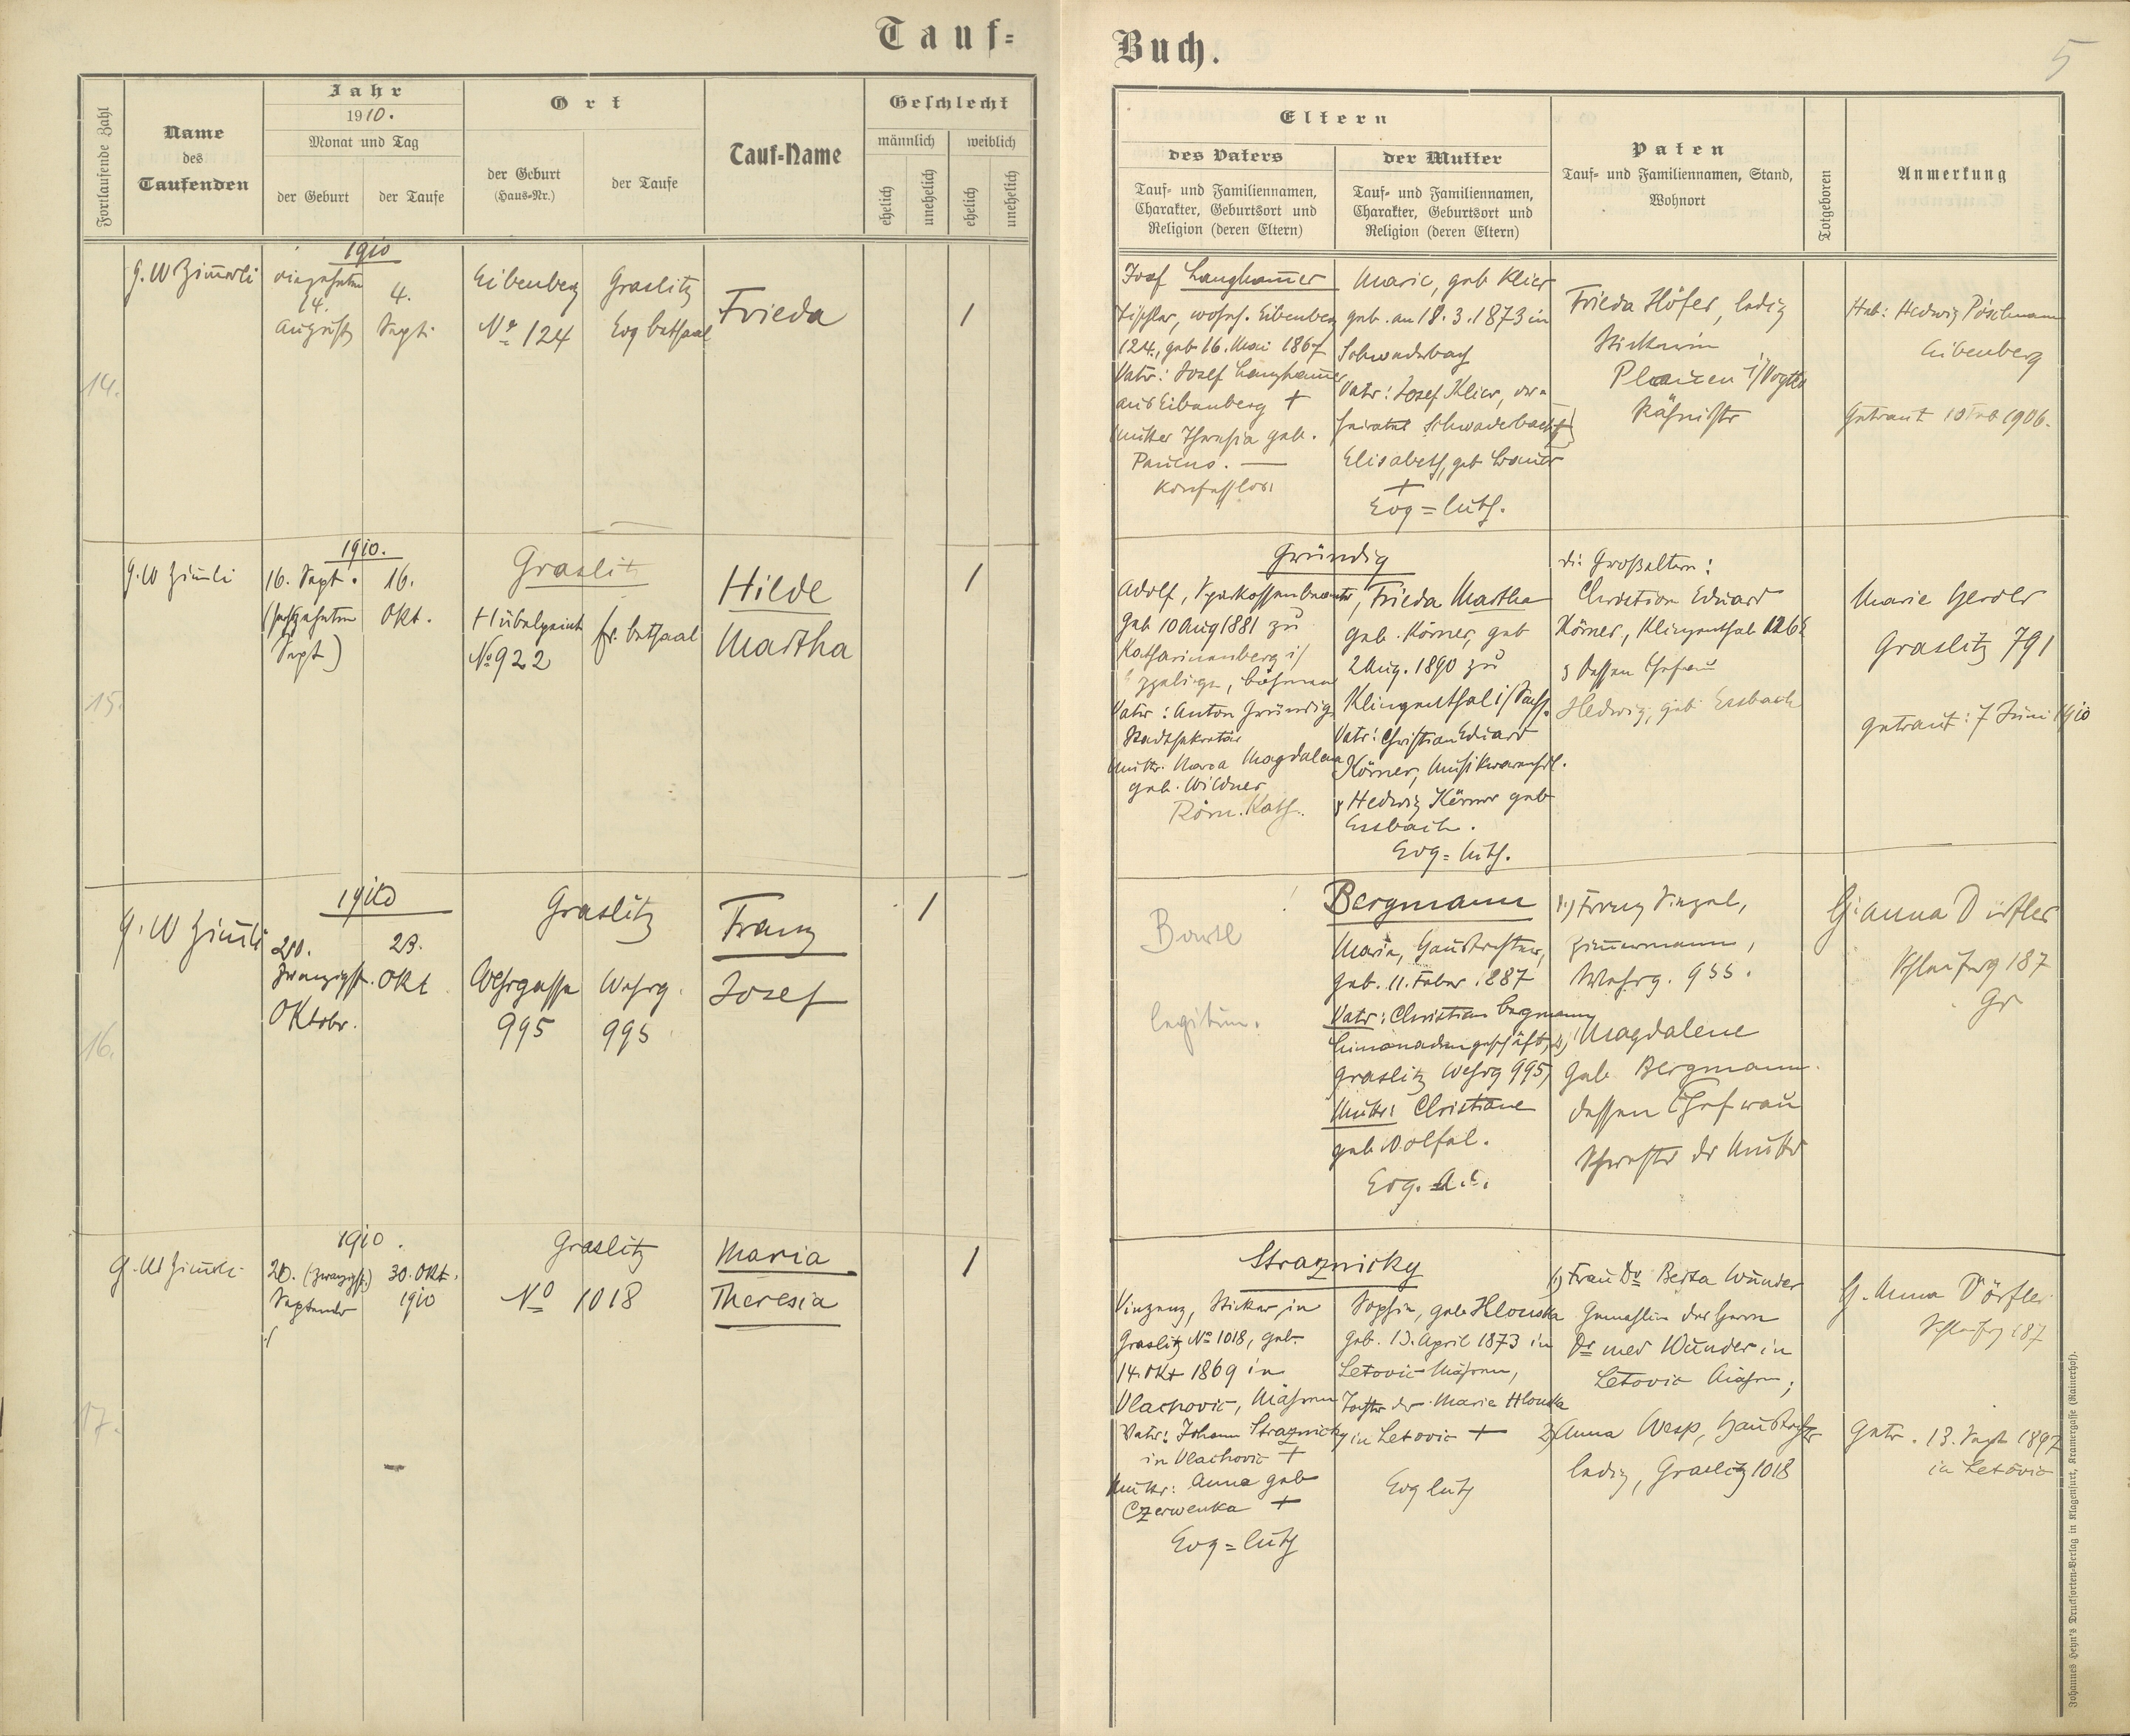 Tauf=
Buch.
5
Fortlaufende Zahl
Name
des
Taufenden
Jahr
1910.
Monat und Tag
der Geburt
der Taufe
Ort
der Geburt
(Haus=Nr.)
der Taufe
Tauf=Name
Geschlecht
männlich
weiblich
ehelich
unehelich
ehelich
unehelich
Eltern
des Vaters
Tauf= und Familiennamen,
Charakter, Geburtsort und
Religion (deren Eltern)
der Mutter
Tauf= und Familiennamen,
Charakter, Geburtsort und
Religion (deren Eltern)
Paten
Tauf= und Familiennamen, Stand,
Wohnort
Totgeboren
Anmerkung
14.
1910
14.
August
4.
Sept.
Eibenberg
No 124
Graslitz
Evg betsaal
Frieda
1
Josef Langham̄er
Tischler, wohnh. Eibenberg
124., geb 16. Mai 1867
Vater: Josef Langham̄er
aus Eibenberg +
Mutter Theresia geb.
Paulus. —
Konfesslos
Marie, geb Klier
geb. am 18. 3. 1873 in
Schwaderbach
Vater: Josef Klier, ver=
heiratet Schwaderbach
Elisabeth, geb
+
Evg = luth.
Frieda Höfer, ledig
Stickerin
Plauen i/Vogtld
Heb: Hedwig Pöschmann
Eibenberg
Getraut 10 Feb 1906.
15.
1910.
16. Sept.
(sechzehnten
Sept)
16.
Okt.
Graslitz
No 922
betsaal
Hilde
Martha
1
Gründig
Adolf, Sparkassenbeamter,
geb 10 Aug 1881 zu
Katharinenberg i/
böhmen
Vater: Anton Gründig
Stadtsekretär
Mutter. Maria Magdalena
geb. Wildner
Röm. Kath.
Frieda Martha
geb. Körner, geb
2 Aug. 1890 zu
Klingenthal i/Sachs.
Vater: Christian Eduard
Körner, Musikwarenhdl.
& Hedwig Körner geb
Essbach.
Evg = luth.
die Großeltern:
Christian Eduard
Körner, Klingenthal
& dessen Ehefrau
Hedwig, geb Essbach
Marie
Graslitz 791
getraut: 7 Juni 1910
16.
1910
20.
zwanzigst.
Oktober.
23.
Okt
Graslitz
Wehrgasse
995
Wehrg.
995
Franz
Josef
1
legitim.
Bergmann
Maria, Haustochter,
geb. 11. Feber 1887
Vater: Christian Bergmann
Limonadengeschäft,
Graslitz Wehrg 995,
Mutter: Christiane
geb
Evg. A.C.
1.) Franz
Zimmermann,
Wehrg. 955.
2) Magdalene
geb Bergmann.
dessen Ehefrau
Schwester der Mutter
G. Anna Dörfler
187
Gr
17.
1910.
20. (zwanzigst.)
September
30. Okt.
1910
Graslitz
No 1018
Maria
Theresia
1
Straznicky
Vinzenz, Sticker in
Graslitz No 1018, geb.
14. Okt 1869 in
Vlachovic, Mähren
Vater: Johann Straznicky
in Vlachovic +
Mutter: Anna geb
Czerwenka +
Evg = luth
Sophie, geb Hlouska
geb. 13. April 1873 in
Letovic Mähren,
Tochter der Marie Hlouska
in Letovic +
Evg luth
1) Frau Dr Berta Wunder
Gemahlin des Herrn
Dr med Wunder in
Letovic Mähren;
2) Anna Wesp, Haustochter
ledig, Graslitz 1018
G. Anna Dörfler
187
Getr. 13. Sept 1897
in Letovic
Johannes Heyn's Drucksorten=Verlag in Klagenfurt, Kramergasse (Rainerhof).